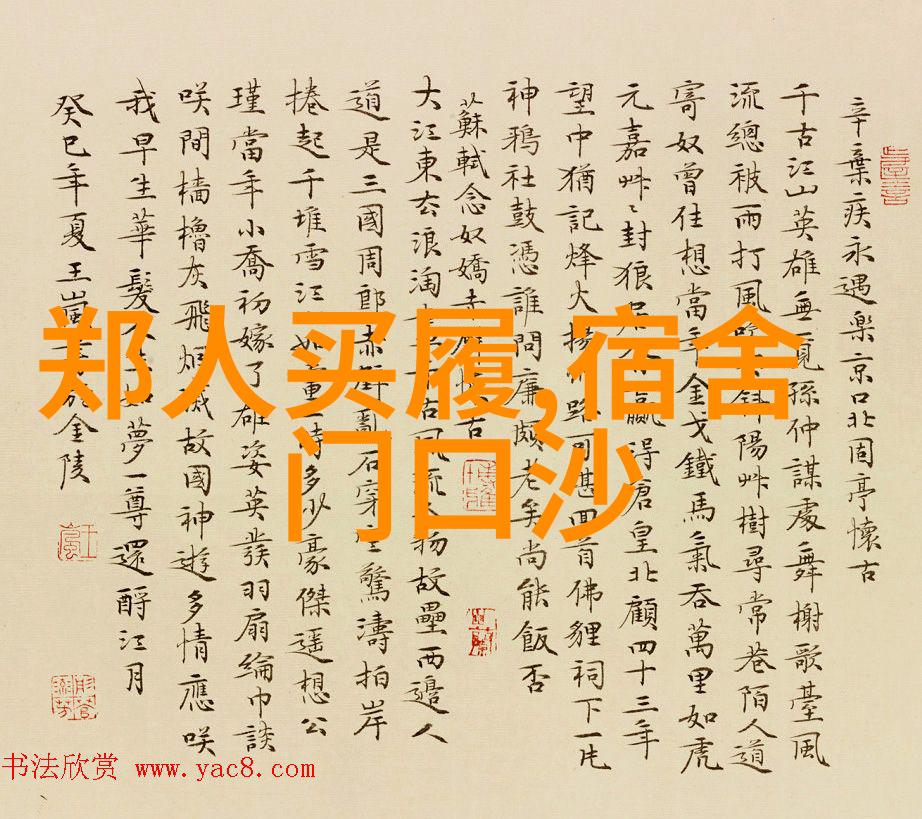 郑人买履,宿舍
门口沙
辛棄疾永遇樂京口北固亭懷古
千古江山英雄無覓孫仲謀處舞榭歌臺風
流總被雨打風斜陽艸樹尋常巷陌人道
寄奴曾住想當年金戈鐵馬氣吞萬里如虎
元嘉艸〻封狼居贏得倉皇北顧四十三年
望中猶記烽火揚路可堪回首佛貍祠下一片
神鴉社鼓憑誰問廉頗老矣尚能飯否
蘇軾念奴嬌赤懷古
大江東去浪淘古風流物故壘西邊人
道是三國周郎赤壁亂石穿空驚濤拍岸
捲起千堆雪江如畫一時多少豪傑遙想公
瑾當年小喬初嫁了雄姿英發羽扇綸巾談
咲間檣櫓灰飛煙滅故國神遊多情應咲
我早生華髮如夢一尊還酹江月
癸巳年夏王嵐於金陵
书法欣赏 www.yac8.com